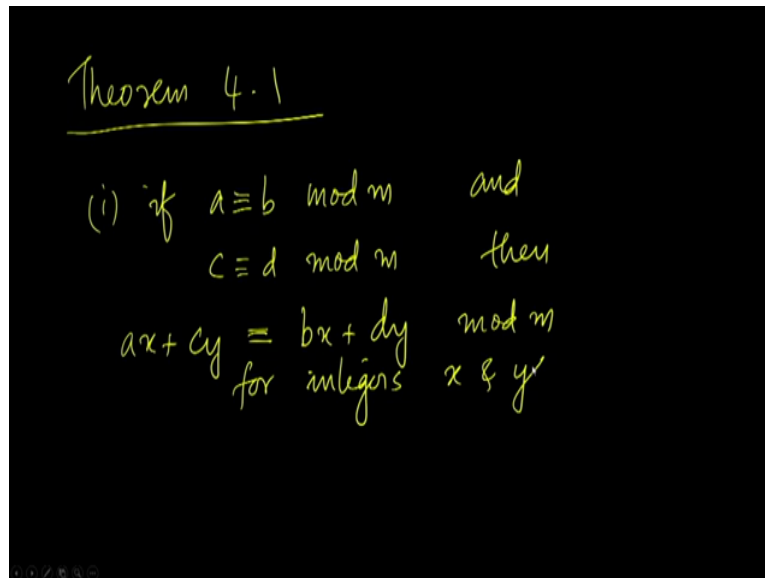 Theorem 4.1
(i) if a ≡ b mod m and
c ≡ d mod m then
ax + cy ≡ bx + dy mod m
for integers x & y